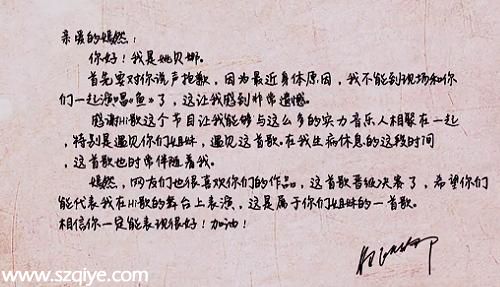 亲爱的嫣然：
你好！我是姚贝娜。
首先要对你说声抱歉，因为最近身体原因，我不能到现场和你
们一起演唱《鱼》了，这让我感到非常遗憾。
感谢Hi歌这个节目让我能够与这么多的实力音乐人相聚在一起
，特别是遇见你们姐妹，遇见这首歌。在我生病休息的这段时间
，这首歌也时常伴随着我。
嫣然，网友们也很喜欢你们的作品，这首歌晋级决赛了，希望你们
能代表我在Hi歌的舞台上表演，这是属于你们姐妹的一首歌。
相信你一定能表现很好！加油！
www.szqiye.com